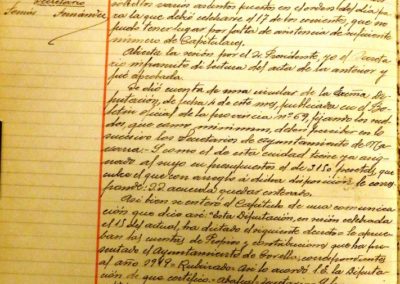 Secretario
Tomás Fernández
sólo los varios asuntos puestos en el orden del día pa
ra la que debió celebrarse el 17 de los corrientes, que no
pudo tener lugar por falta de asistencia de suficiente
número de Capitulares.
Abierta la sesión por el Sr. Presidente, yo el Secreta
rio infrascrito di lectura del acta de la anterior y
fué aprobada.
Se dió cuenta de una circular de la Excma. Di
putación, de fecha 6 de este mes, publicada en el Bo
letín Oficial de la provincia nº 69, fijando los suel
dos, que como minimum, deben percibir en lo
sucesivo los Secretarios de Ayuntamiento de Na
varra: Y como el de esta ciudad tiene ya asig
nado al suyo en presupuestos el de 3150 pesetas, que
es el que con arreglo á dicha disposición le corres
pondo: SS. acuerda quedar enterado.
Así bien se enteró el Capítulo de una comunica
ción que dice así: "Esta Diputación, en sesión celebrada
el 13 del actual, ha dictado el siguiente decreto = Se aprue
ban las cuentas de Propios y contribuciones que ha pre
sentado el Ayuntamiento de Corella, correspondientes
al año 1919 = Rubricado = Así lo acordó S.E. la Diputa
ción de que certifico =